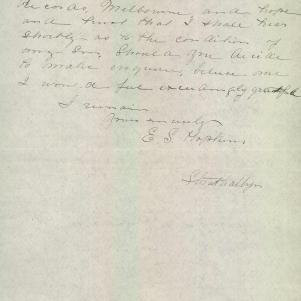 Records, Melbourne and hope
and trust that I shall hear
shortly as to the condition of
my Son, Should you decide
to make enquiry, believe me
I would feel exceedingly grateful
I remain
Yours sincerely
E. S. Hopkins
Strathalbyn